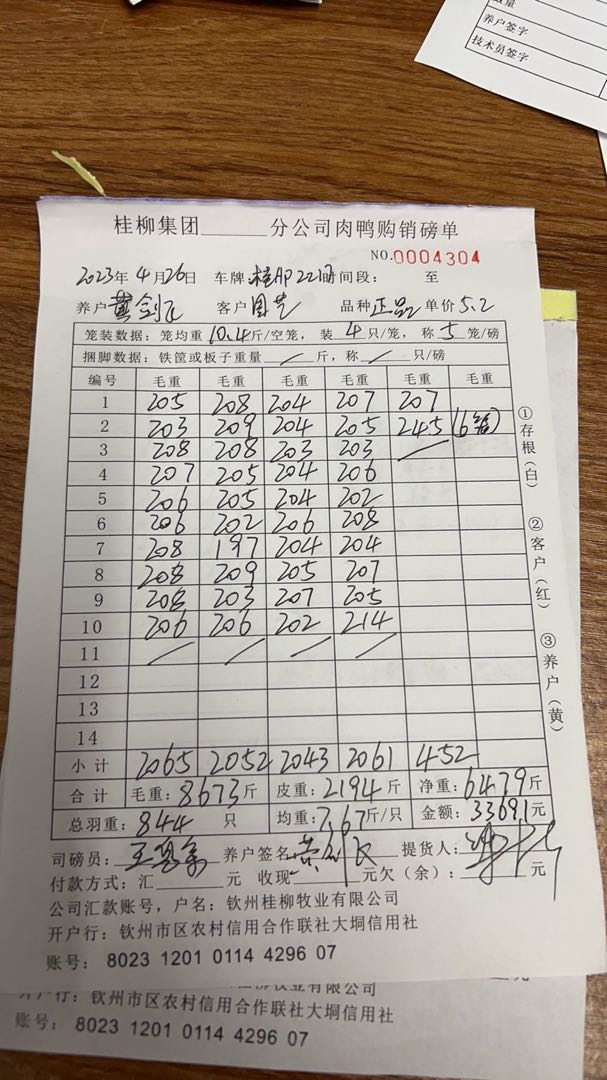 数量
养户签字
技术员签字
桂柳集团______分公司肉鸭购销磅单
NO.0004304
2023年 4月26日 车牌: 时间段: 至
养户 黄剑飞 客户 品种 正品 单价 5.2
笼装数据: 笼均重 10.4 斤/空笼, 装 4 只/笼, 称 5 笼/磅
捆脚数据: 铁筐或板子重量 / 斤, 称 / 只/磅
编号 毛重 毛重 毛重 毛重 毛重 毛重
1 205 208 204 207 207
2 203 209 204 205 245 (6笼)
3 208 208 203 203 /
4 207 205 204 206
5 206 205 204 202
6 206 202 206 208
7 208 197 204 204
8 208 209 205 207
9 208 203 207 205
10 206 206 202 214
11 / / / /
12
13
14
小计 2065 2052 2043 2061 452
合计 毛重: 8673斤 皮重: 2194斤 净重: 6479斤
总羽重: 844 只 均重: 7.67斤/只 金额: 33691元
司磅员: 养户签名: 提货人:
付款方式: 汇______元 收现______元欠(余): ______元
公司汇款账号, 户名: 钦州桂柳牧业有限公司
开户行: 钦州市区农村信用合作联社大垌信用社
账号: 8023 1201 0114 4296 07
①存根(白) ②客户(红) ③养户(黄)
牧业有限公司
开户行: 钦州市区农村信用合作联社大垌信用社
账号: 8023 1201 0114 4296 07